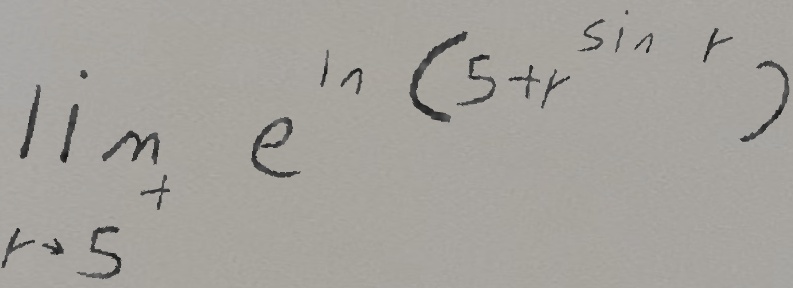 lim_{r→5^+} e^{ln(5+r^{sin r})}